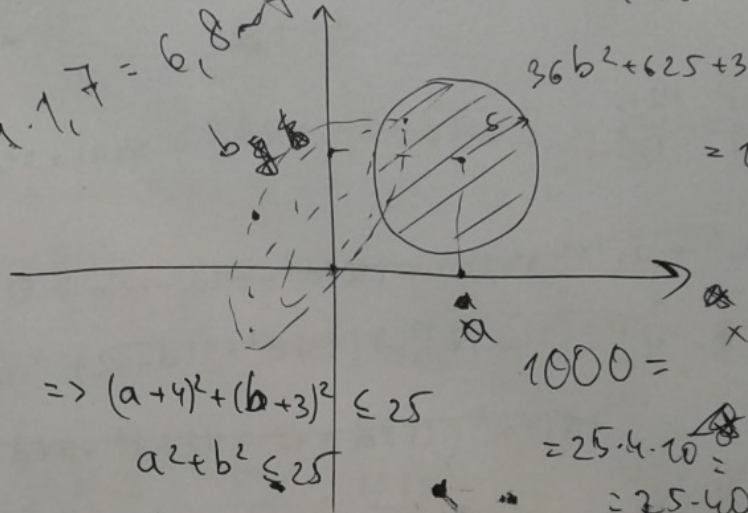 .1,7 = 6,8
36b²+625+3
b
5
= 1
a
x
=> (a+4)²+(b+3)² ≤ 25
a²+b² ≤ 25
1000 =
= 25·4·10
=
= 25·40